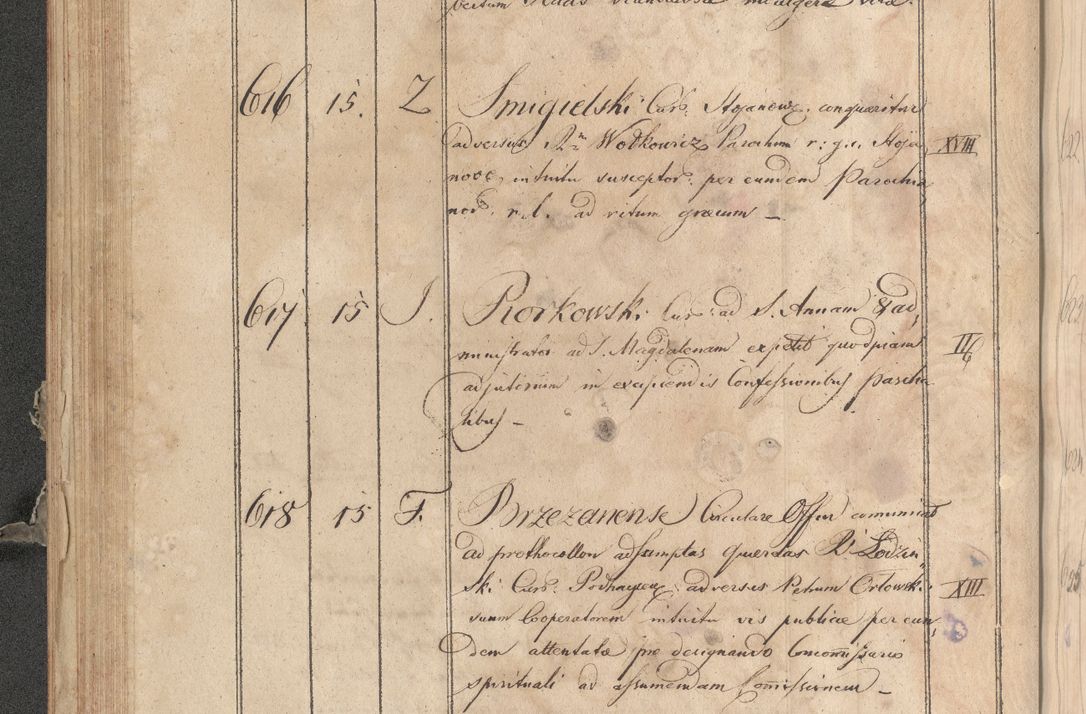 616 15. Z. Smigielski Curb. Stojanow. conquaeritur
adversus Rm Wolkowicz Parochum r: g. c. Stoja XVIII
nove, intuitu susceptor. per eundem Parochia
nor. r. l. ad ritum graecum _
617 15 J. Piorkowski Cur: ad S. Annam & ad,
ministrator ad S. Magdalenam expetit quodpiam II
adjutorium in excipiendis Confessionibus Pascha
libus _
618 15 F. Brzezanense Circulare Offim comunicat
ad prothocollon adsumptas querelas Ri Lodzin
ski Curb. Podhayec. adversus Petrum Orlowski XIII
suum Cooperatorem intuitu vis publicae per eun,
dem attentatae pro designando Commissario
spirituali ad assumendam Comissionem _